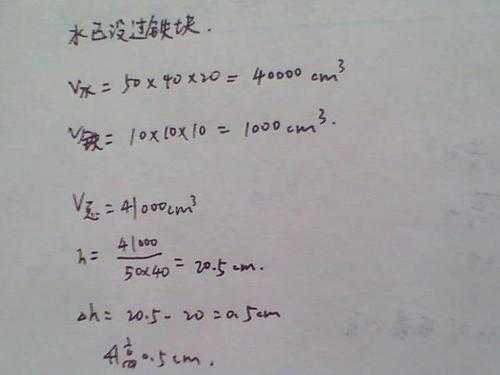 水已没过铁块.
V水= 50×40×20 = 40000 cm³
V铁= 10×10×10 = 1000 cm³.
V总= 41000cm³
h= 41000/50×40 = 20.5 cm.
Δh= 20.5 - 20 = 0.5cm
升高0.5cm.